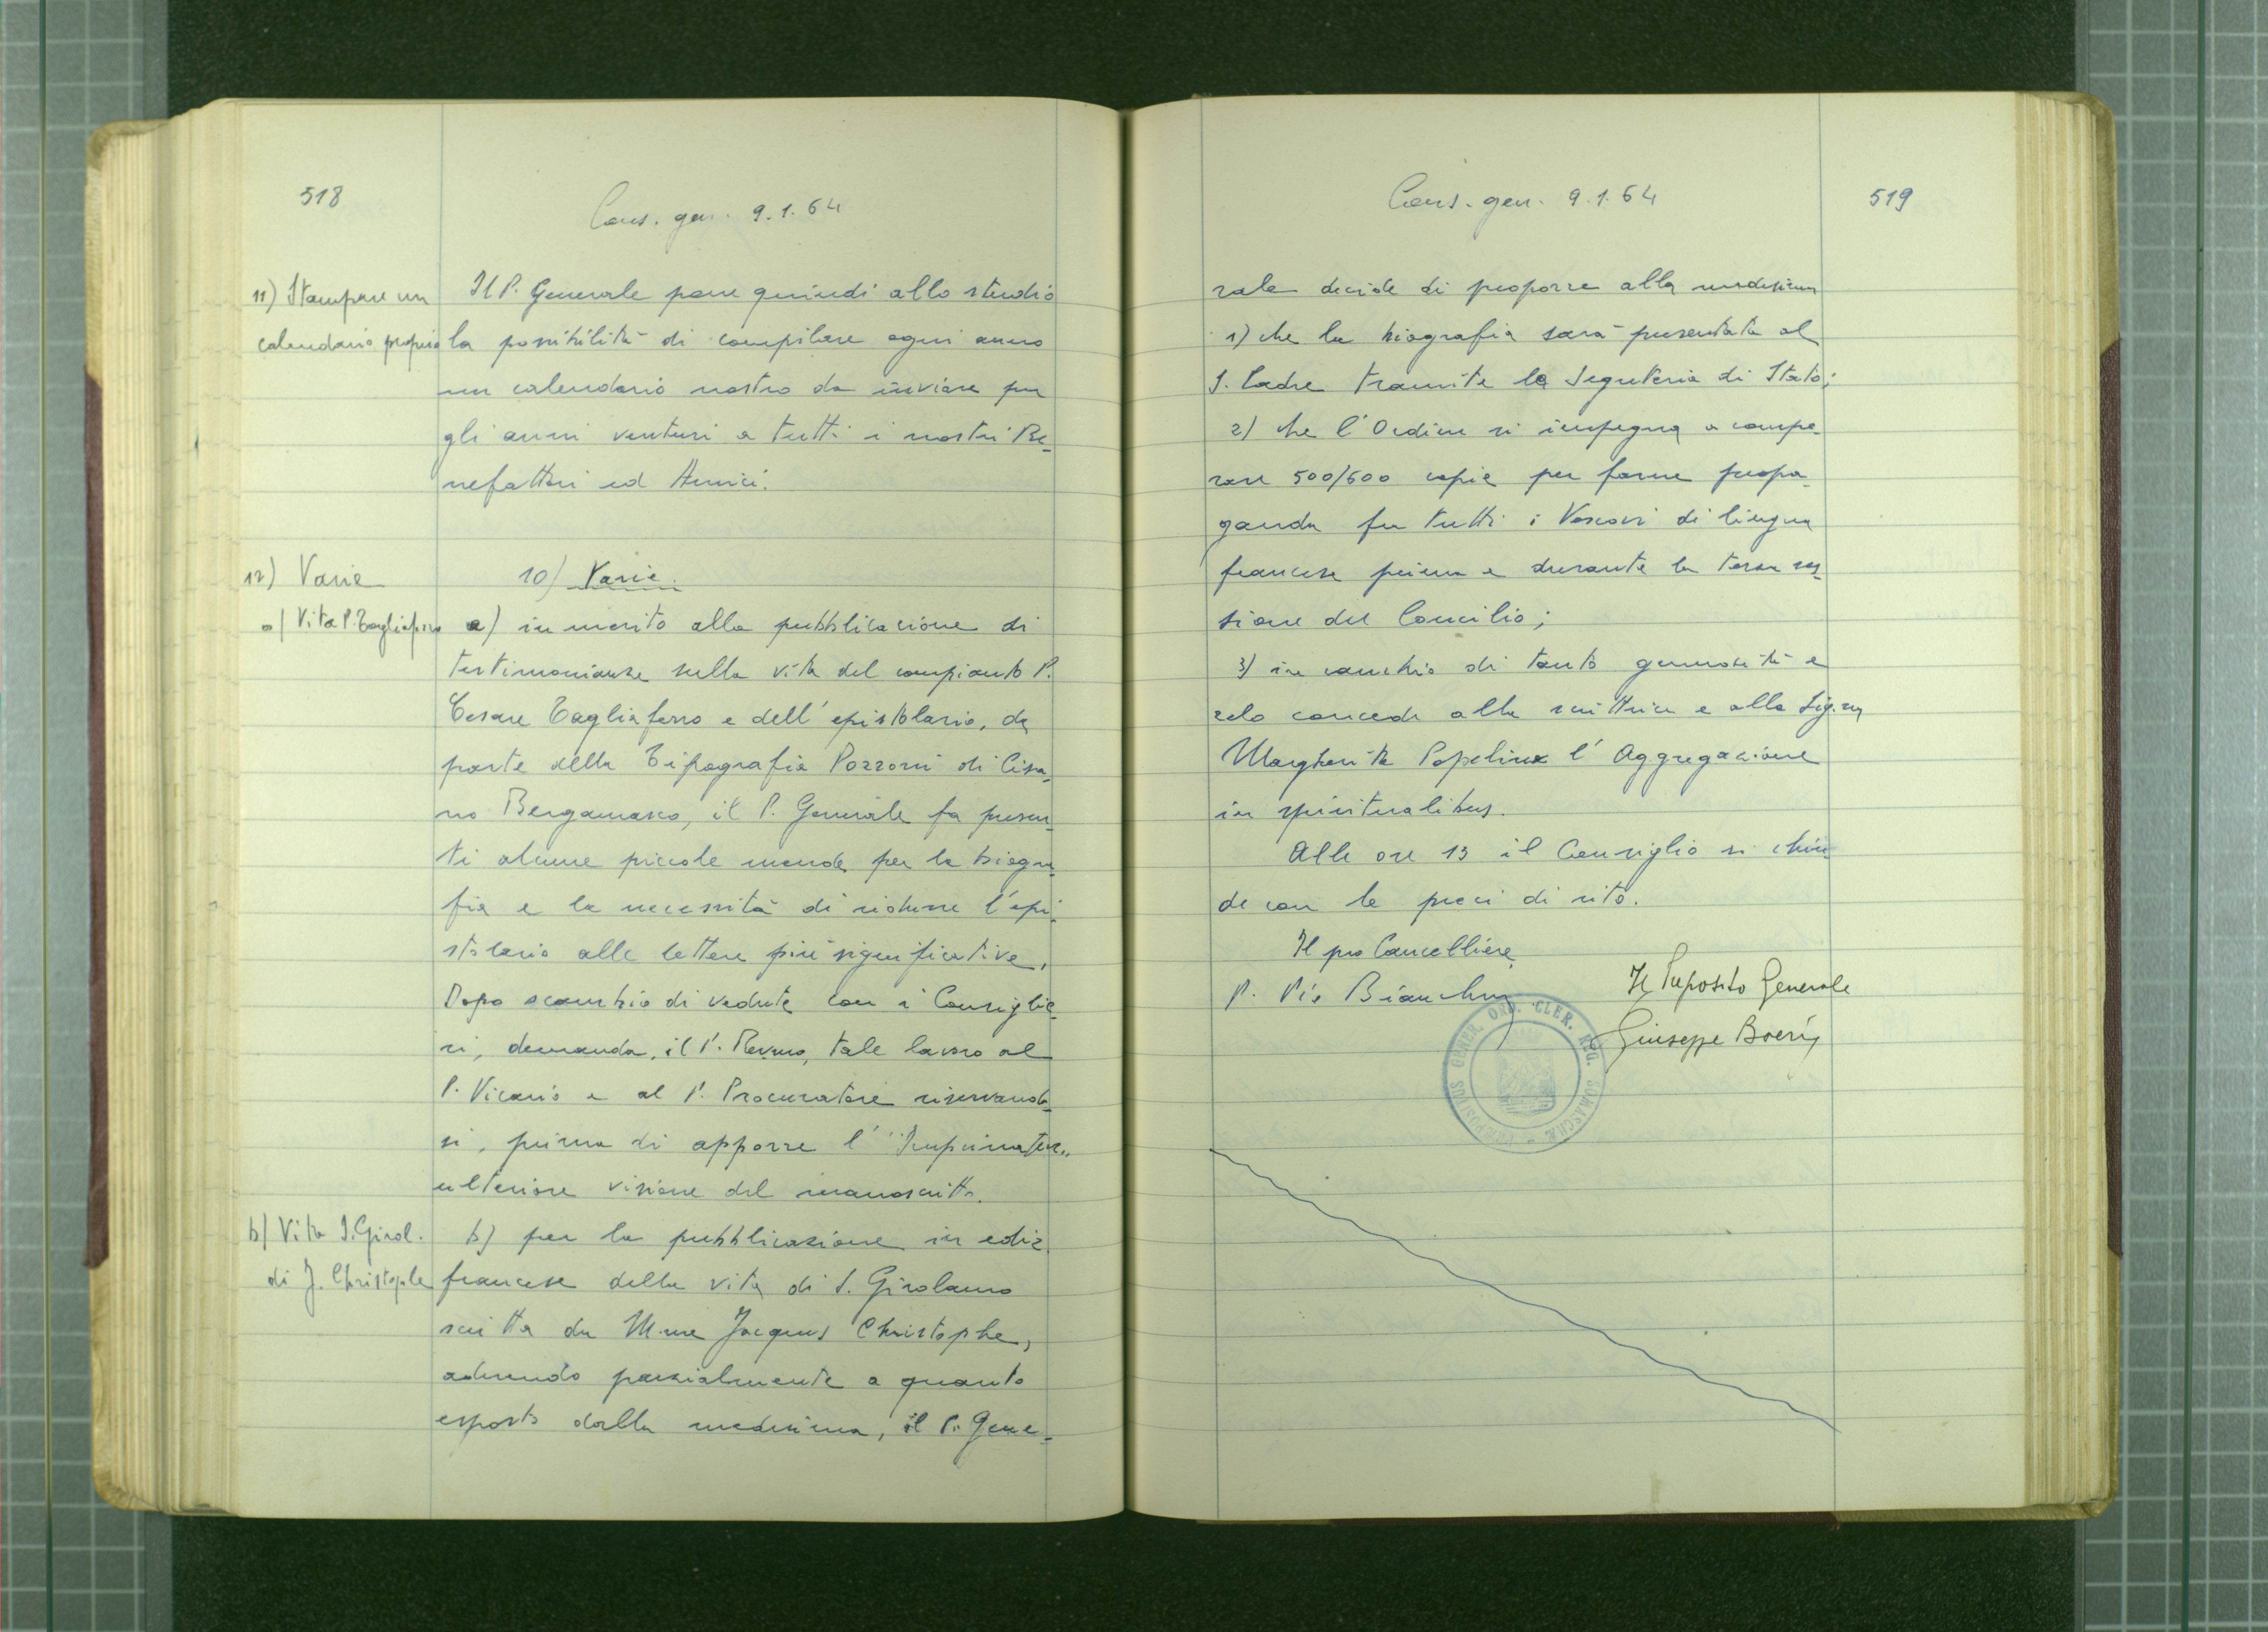 518
Cons. gen. 9.1.64
11) Stampare un
calendario proprio
Il P. Generale pone quindi allo studio
la possibilità di compilare ogni anno
un calendario nostro da inviare per
gli anni venturi a tutti i nostri Be-
nefattori ed Amici.
12) Varie
10) Varie.
a) Vita P. Tagliaferro
a) in merito alla pubblicazione di
testimonianze sulla vita del compianto P.
Cesare Tagliaferro e dell'epistolario, da
parte della Tipografia Pozzoni di Cisa-
no Bergamasco, il P. Generale fa presen-
ti alcune piccole mende per la biogra-
fia e la necessità di ridurre l'epi-
stolario alle lettere più significative.
Dopo scambio di vedute con i Consiglie-
ri, demanda, il P. Rev.mo, tale lavoro al
P. Vicario e al P. Procuratore riservando-
si, prima di apporre l'"Imprimatur"
ulteriore visione del manoscritto.
b) Vita S. Girol.
di J. Christophe
b) per la pubblicazione in ediz.
francese della vita di S. Girolamo
scritta da Mme Jacques Christophe,
aderendo parzialmente a quanto
esposto dalla medesima, il P. Gene-
Cons. gen. 9.1.64
519
rale decide di proporre alla medesima
1) che la biografia sarà presentata al
S. Padre tramite la Segreteria di Stato;
2) che l'Ordine si impegna a compe-
rare 500/600 copie per farne propa-
ganda fra tutti i Vescovi di lingua
francese prima e durante la terza ses-
sione del Concilio;
3) in cambio di tanta generosità e
zelo concede alla scrittrice e alla Sig.na
Margherita Popelinx l'Aggregazione
in spiritualibus.
Alle ore 13 il Consiglio si chiu-
de con le preci di rito.
Il pro Cancelliere
P. Pio Bianchini
Il Preposito Generale
Giuseppe Boeris
PRAEPOSITUS GENER. ORD. CLER. REG. SOMASCHAE